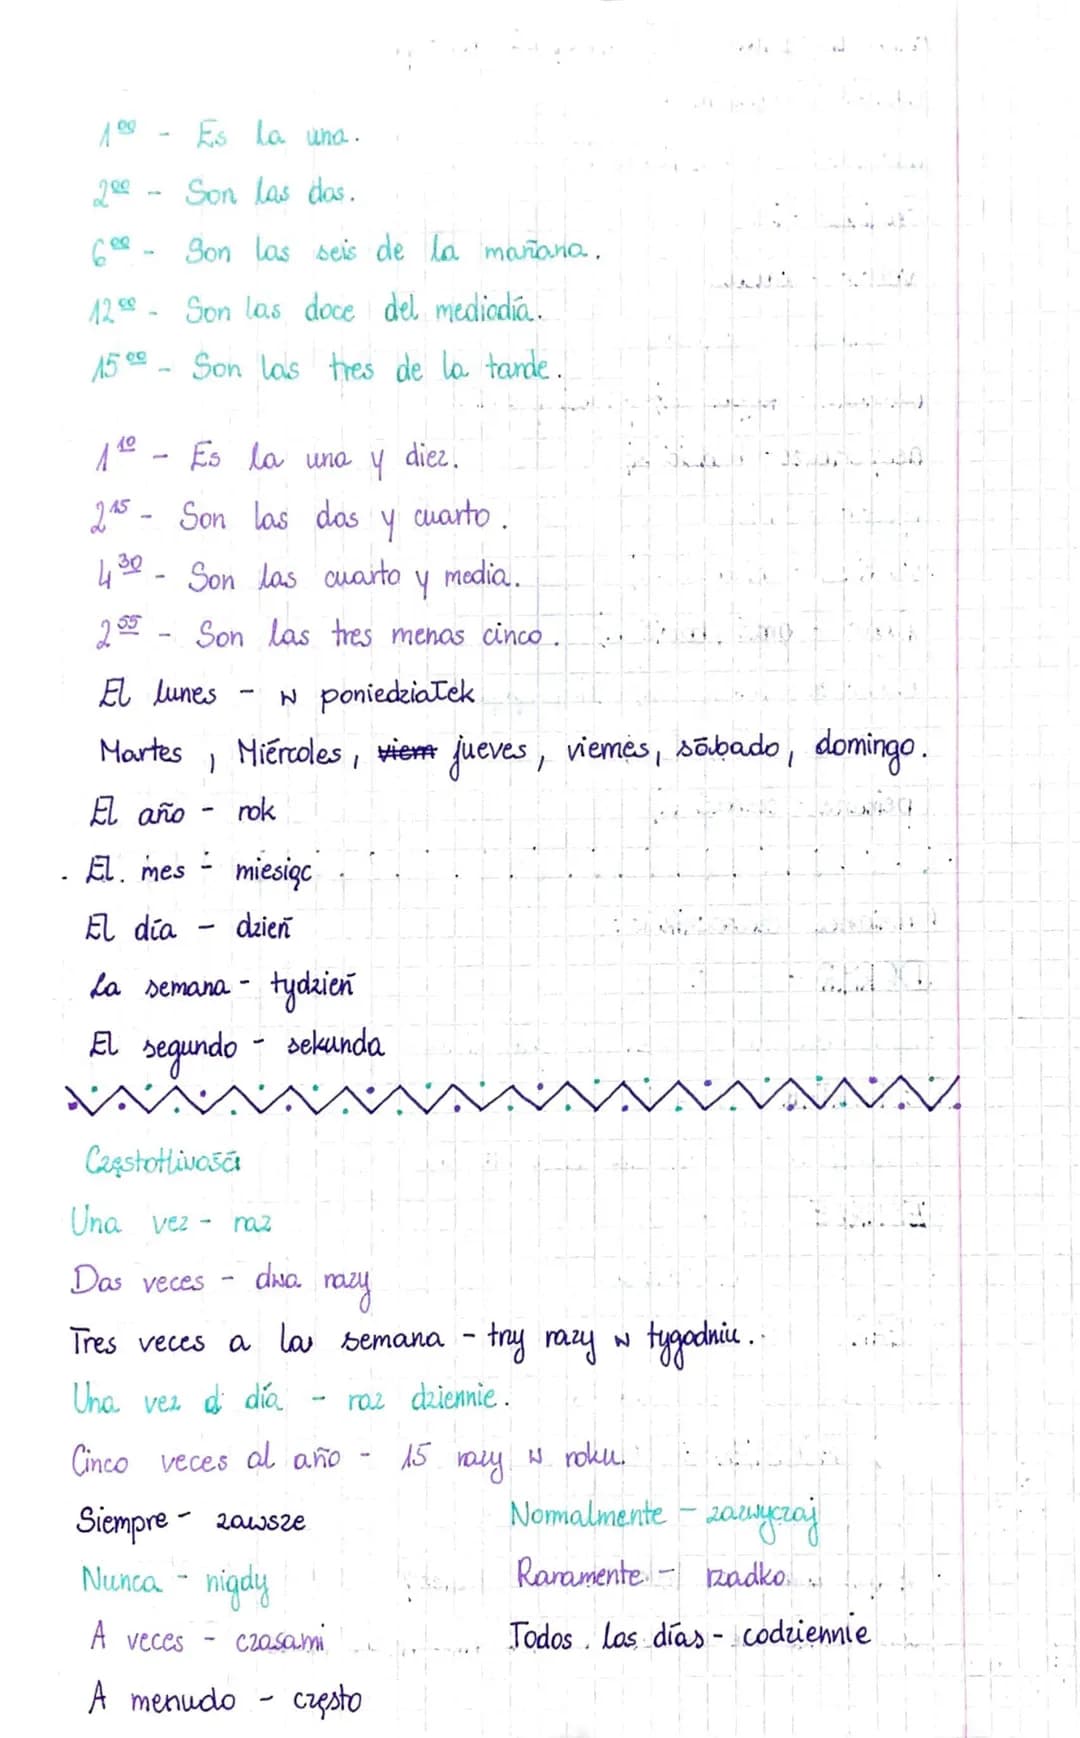 1⁰⁰ - Es la una.
2⁰⁰ - Son las dos.
6⁰⁰ - Son las seis de la mañana.
12⁰⁰ - Son las doce del mediodía.
15⁰⁰ - Son las tres de la tarde.
1¹⁰ - Es la una y diez.
2¹⁵ - Son las dos y cuarto.
4³⁰ - Son las cuarto y media.
2⁵⁵ - Son las tres menos cinco.
El lunes - w poniedziałek
Martes, Miércoles, viern jueves, viernes, sábado, domingo.
El año - rok
El mes - miesiąc
El día - dzień
La semana - tydzień
El segundo - sekunda
Częstotliwości
Una vez - raz
Dos veces - dwa razy
Tres veces a la semana - trzy razy w tygodniu.
Una vez al día - raz dziennie.
Cinco veces al año - 15 razy w roku.
Siempre - zawsze
Nunca - nigdy
A veces - czasami
A menudo - często
Normalmente - zazwyczaj
Raramente - rzadko
Todos los días - codziennie